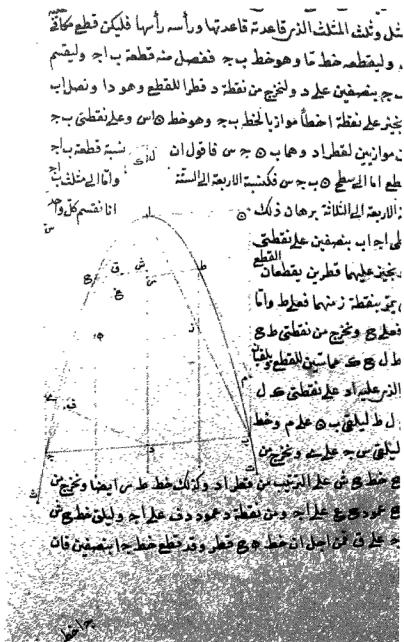 مثل وثلث المثلث الذى قاعدته قاعدتها ورأسه رأسها فليكن قطع مكافى
وليقطعه خط ما وهو خط ب ج ففصل منه قطعة ب ا ج وليقسم
ب ج بنصفين على د ولنخرج من نقطة د قطرا للقطع وهو د ا ونصل ا ب
يجيز على نقطة ا خطا موازيا لخط ب ج وهو خط ه ا س وعلى نقطتى ب ج
موازيين لقطر ا د وهما ب ه ج س فاقول ان نسبة قطعة ب ا ج
قطع اما الى سطح ه ب ج س فكنسبة الاربعة الى الستة واما الى مثلث ا ب
الاربعة الى الثلاثة برهان ذلك انا نقسم كل واحد
ا ج ا ب بنصفين على نقطتى
ونجيز عليهما قطرين يقطعان القطع
بنقطة ز منهما فعلى ط واما
فعلى ع ونخرج من نقطتى ط ع
ط ل ع ك مماسين للقطع يلقيان
الذى عليه ا د على نقطتى ك ل
ل ط ليلقى ب ه على م وخط
ليلقى س ج على ى ونخرج من
ع خط ع ش على الترتيب من قطر ا د وكذلك خط ط س ايضا ونخرج من
ع عمود ع غ على ا ج ومن نقطة د عمود د ف على ا ج وليلق خط ع ش
ا ج على ق فمن اجل ان خط ه ع قطر وقد قطع خط ج ا بنصفين فان
ج ا خط